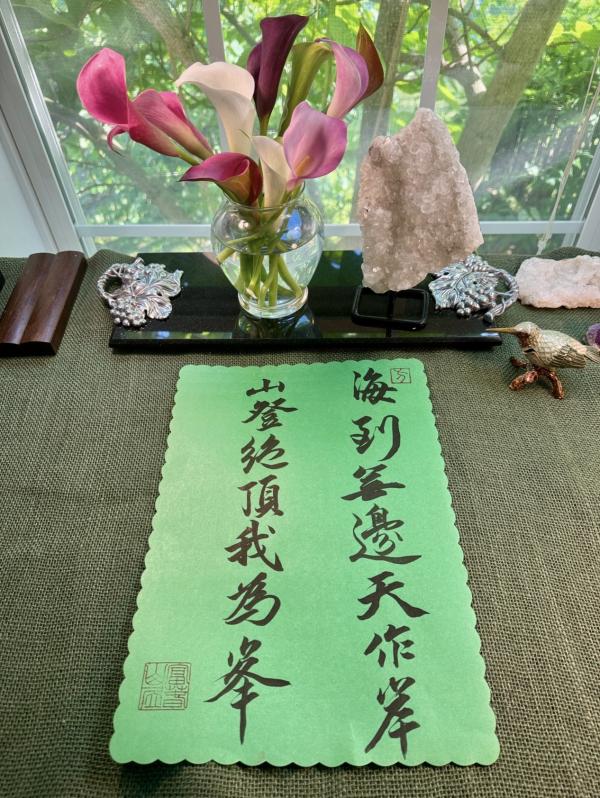 海到無邊天作岸
山登絕頂我為峯